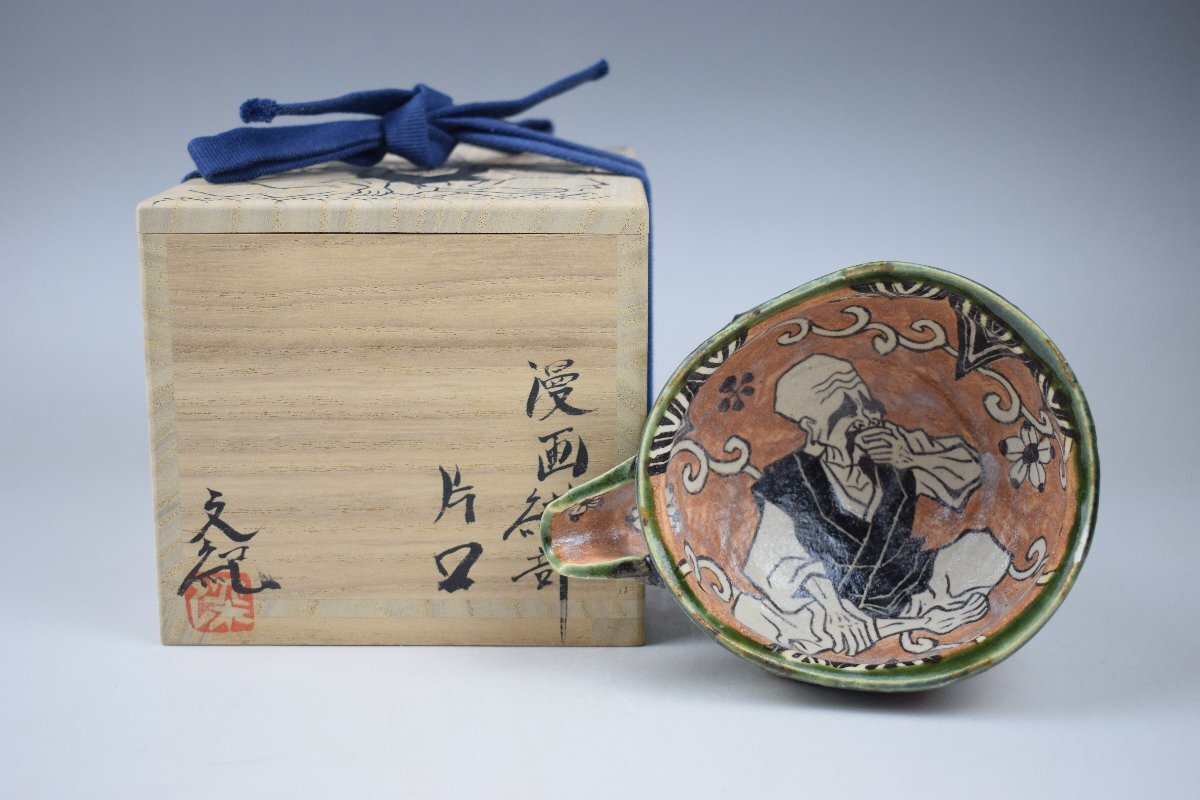 漫画織部
片口
文紀